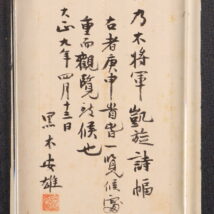 乃木将軍凱旋詩幅
右者庚申首春一覧候處
重而觀覧致候也
大正九年四月十三日
黒木安雄